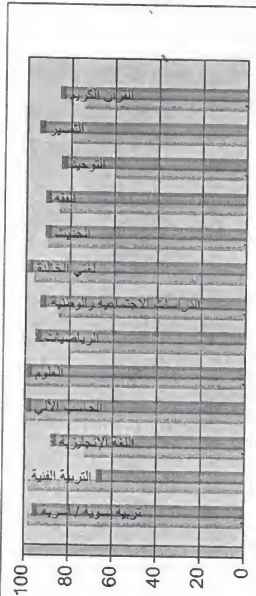 القرآن الكريم
التفسير
التوحيد
الفقه
الحديث
لغتي الخالدة
الدراسات الاجتماعية والوطنية
الرياضيات
العلوم
الحاسب الآلي
اللغة الإنجليزية
التربية الفنية
تربية نسوية / أسرية
100
80
60
40
20
0